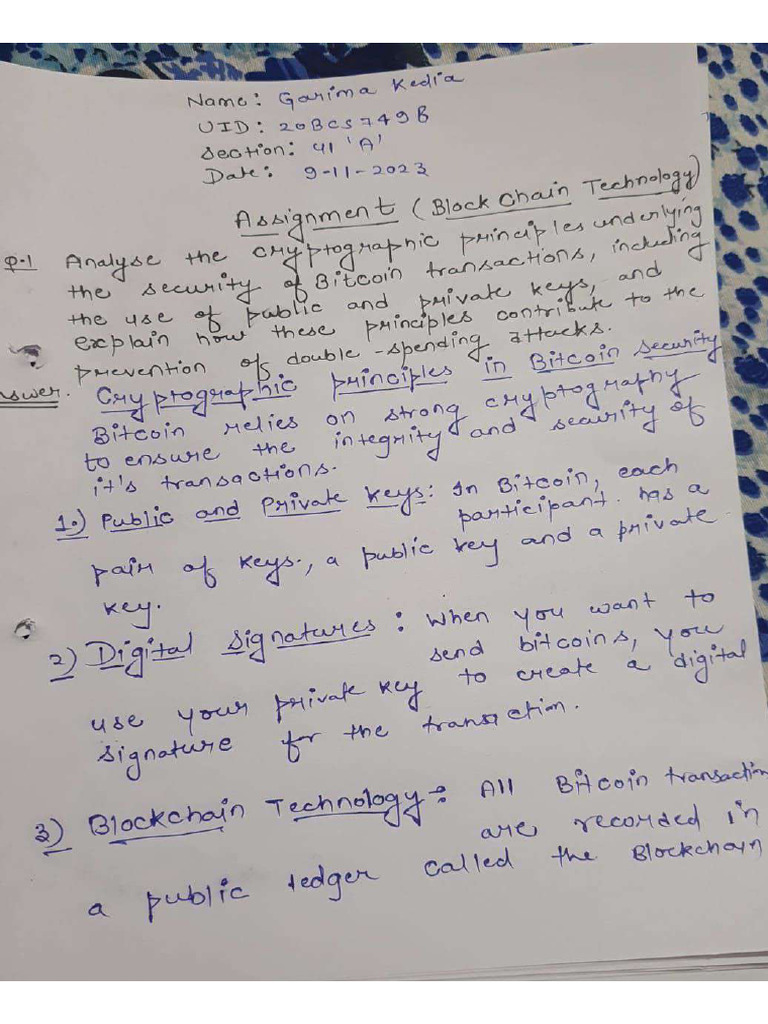 Name: Garima Kedia
UID: 20BCS7498
Section: 41 'A'
Date: 9-11-2023
Assignment (Block Chain Technology)
Q.1 Analyse the cryptographic principles underlying
the security of Bitcoin transactions, including
the use of public and private keys, and
explain how these principles contribute to the
prevention of double-spending attacks.
swer. Cryptographic principles in Bitcoin security
Bitcoin relies on strong cryptography
to ensure the integrity and security of
it's transactions.
1.) Public and Private keys: In Bitcoin, each
participant has a
pair of keys., a public key and a private
key.
2) Digital Signatures: When you want to
send bitcoins, you
use your private key to create a digital
signature for the transaction.
3) Blockchain Technology: All Bitcoin transaction
are recorded in
a public ledger called the Blockchain